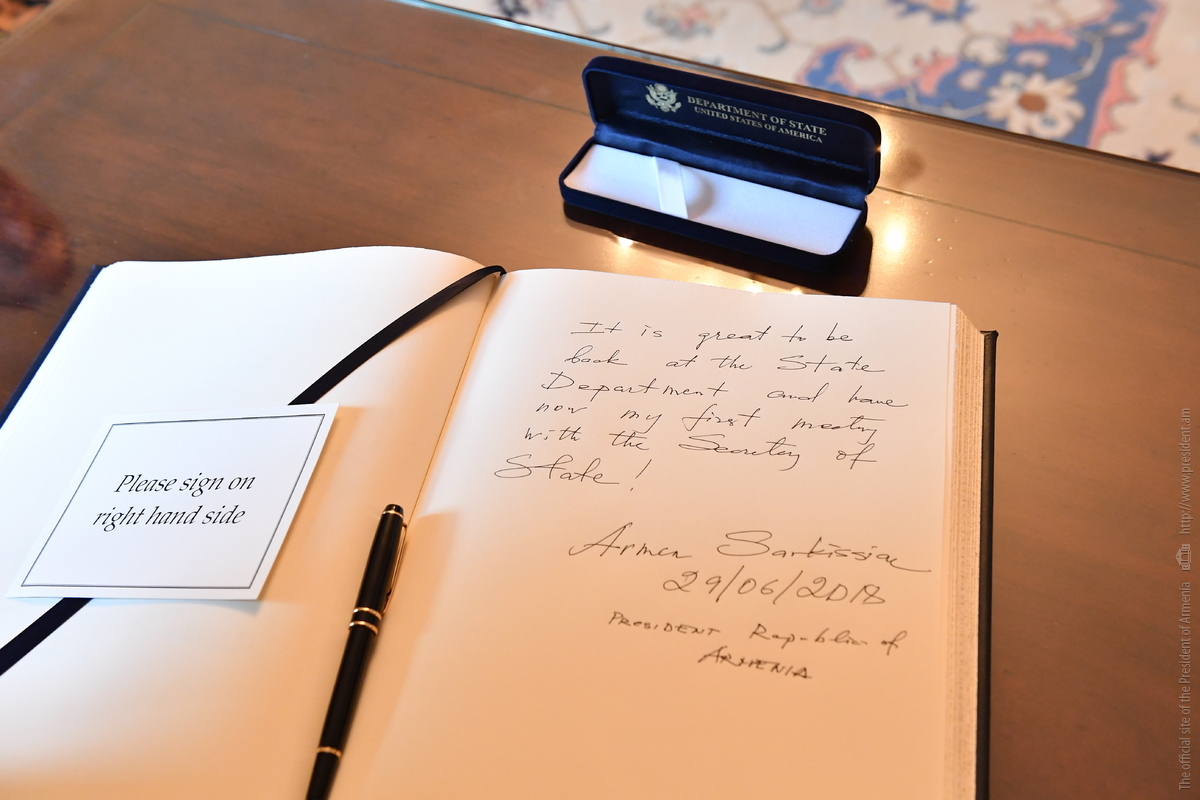 DEPARTMENT OF STATE
UNITED STATES OF AMERICA
Please sign on
right hand side
It is great to be
back at the State
Department and have
now my first meeting
with the Secretary of
State!
Armen Sarkissian
29/06/2018
PRESIDENT Republic of
ARMENIA
The official site of the President of Armenia http://www.president.am